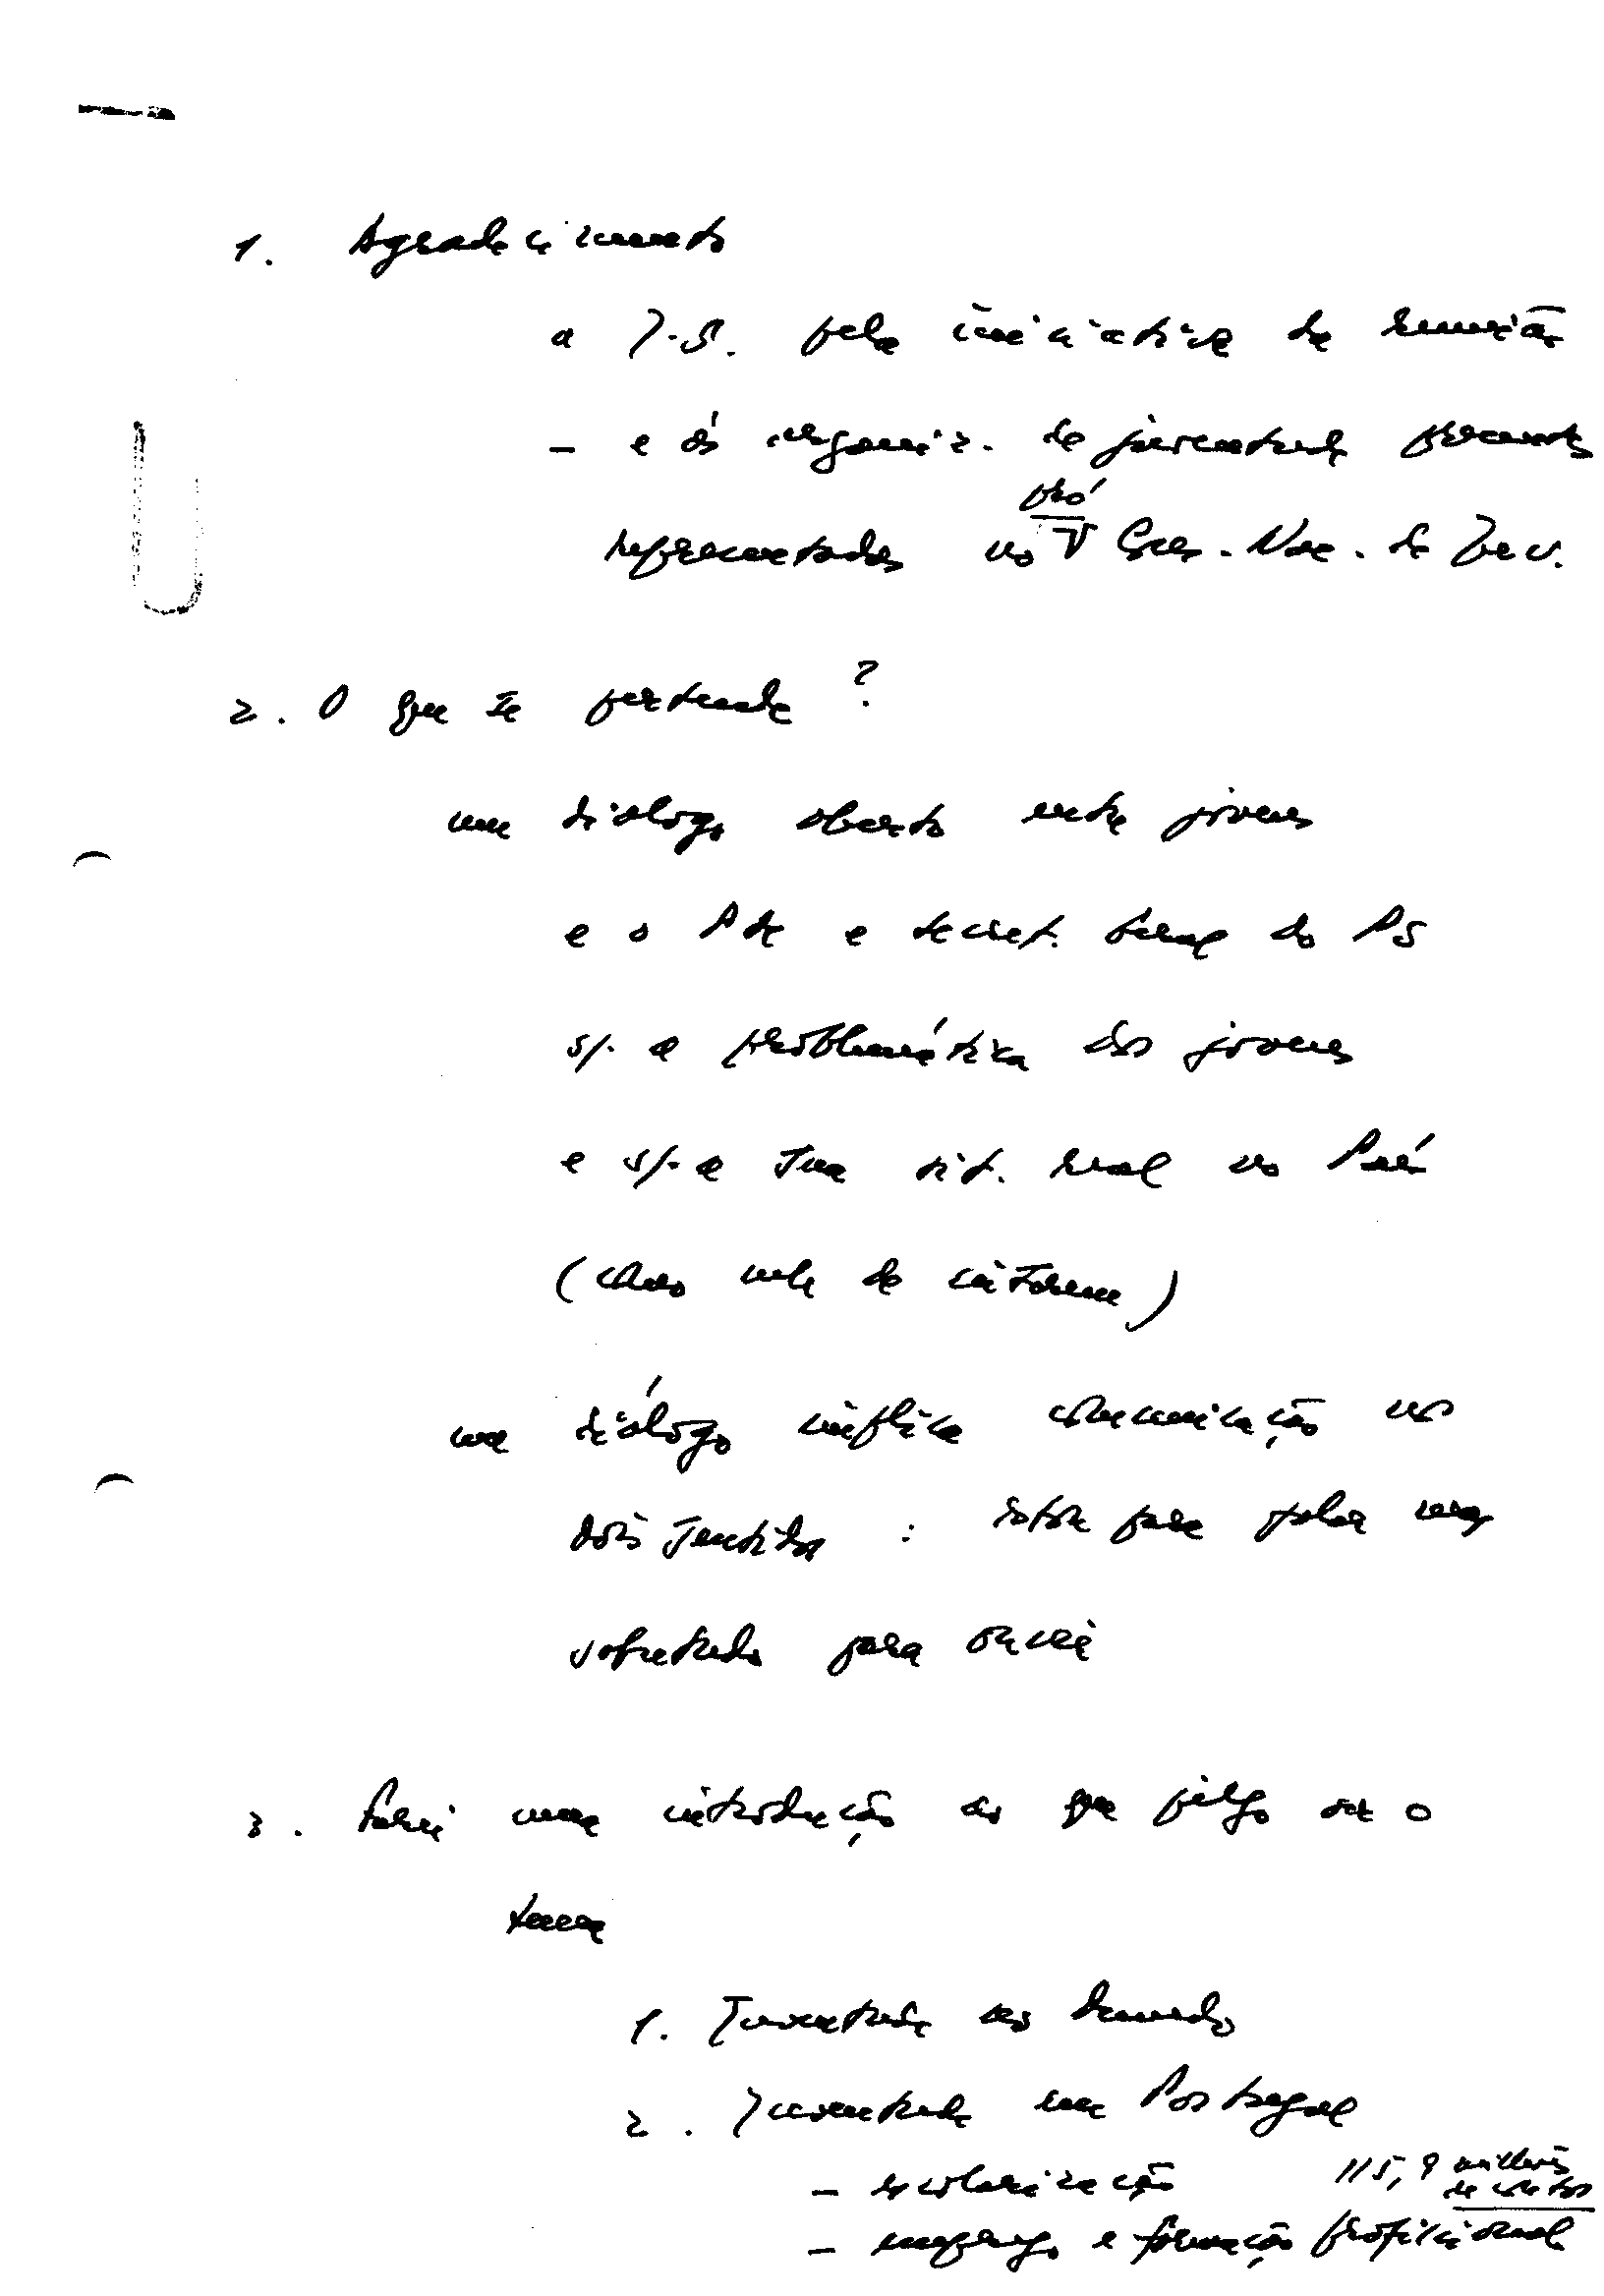 1. Agradecimento
a J.S. pela iniciativa da reunião
- e às organiz. de juventude presentes
pró
representadas no Cons. Nac. de Juv.
2. O que se pretende?
um diálogo aberto entre jovens
e o e secret. geral do PS
s/. a problemática dos jovens
e s/. a sua sit. real no País
(caso de)
um diálogo implica comunicação nos
dois sentidos: estou para falar mas
sobretudo para ouvir
3. Farei uma introdução ao que julgo ser o
tema
1. Juventude no mundo
2. Juventude em Portugal
- escolarização 115,9 milhões
de contos
- emprego e formação profissional